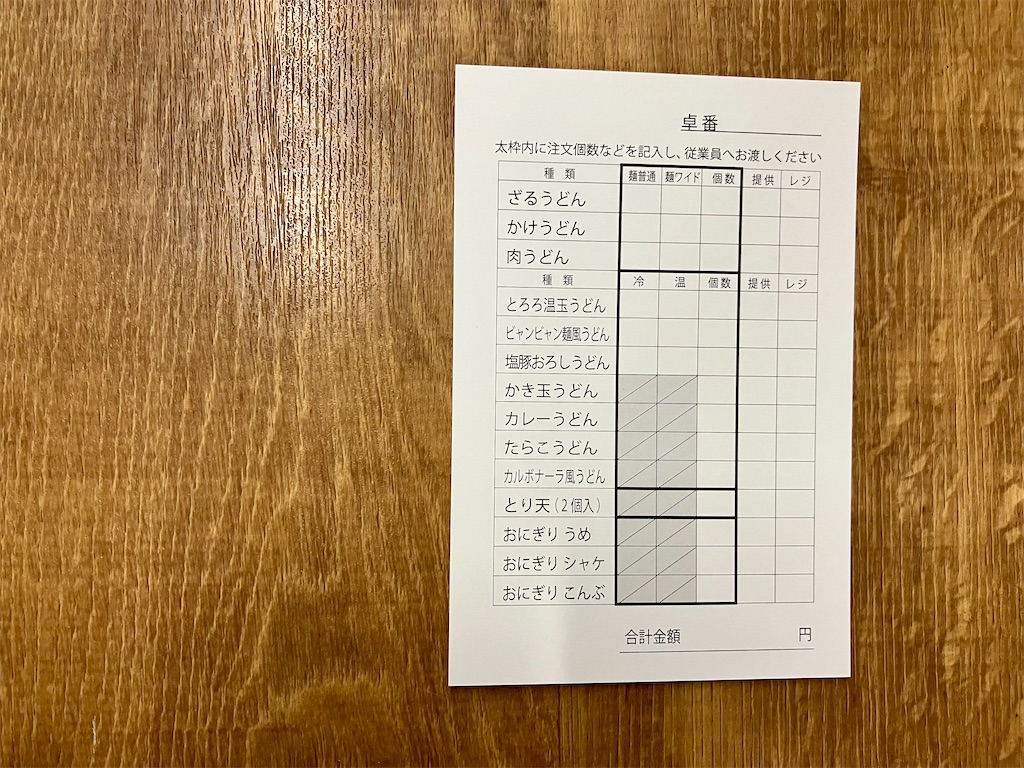 卓番
太枠内に注文個数などを記入し、従業員へお渡しください
種 類 麺普通 麺ワイド 個数 提供 レジ
ざるうどん
かけうどん
肉うどん
種 類 冷 温 個数 提供 レジ
とろろ温玉うどん
ビャンビャン麺風うどん
塩豚おろしうどん
かき玉うどん
カレーうどん
たらこうどん
カルボナーラ風うどん
とり天(2個入)
おにぎり うめ
おにぎり シャケ
おにぎり こんぶ
合計金額 円